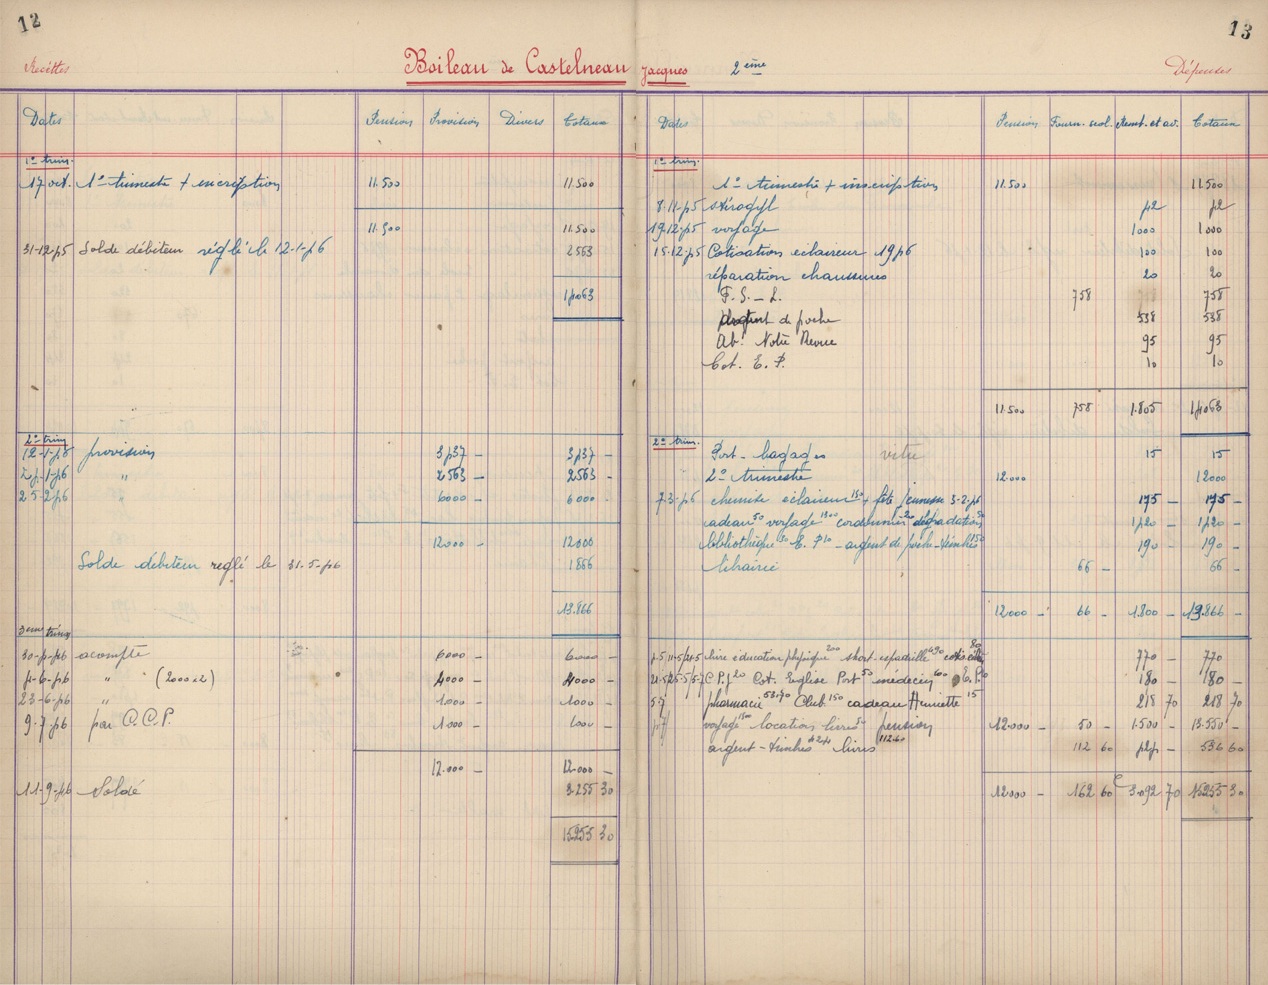 12
Recettes
Boileau de Castelneau
Dates Pension Provision Divers Totaux
1er trim.
17 oct. 1er trimestre + inscription 11.500 11.500
11.500 11.500
31-12-45 Solde débiteur réglé le 12-1-46 2563
14063
2e trim.
12-1-46 provision 3437 – 3437 –
24-1-46 " 2563 – 2563 –
25-2-46 " 6000 – 6000 –
12000 – 12000
Solde débiteur reglé le 31-5-46 1866
13.866
3em trim
30-4-46 acompte 6000 – 6000 –
4-6-46 " " (2000x2) 4000 – 4000 –
23-6-46 " 1000 – 1000 –
9-7-46 par C.C.P. 1000 – 1000 –
12.000 – 12.000 –
11-9-46 Solde 3255 30
15255 30
13
Jacques 2ème
Dépenses
Dates Pension Fourn. scol. Remb. et av. Totaux
1er trim.
1er trimestre + inscription 11.500 11.500
8-11-45 stérogyl 42 42
19-12-45 voyage 1000 1000
15-12-45 Cotisations eclaireur 1946 100 100
réparation chaussures 20 20
F. S. – L. 758 758
argent de poche 538 538
Ab. Notre Revue 95 95
Cot. E. P. 10 10
11.500 758 1.805 14063
2e trim.
Port – bagages 15 15
2e trimestre 12.000 12000
7-3-46 chemise eclaireur 150 + fête jeunesse 3-2-46 175 – 175 –
cadeau 50 voyage 1300 cordonnier 20 dégradation 50 1420 – 1420 –
bibliothèque E. P 10 – argent de poche – timbres 150 190 – 190 –
librairie 66 – 66 –
12000 – 66 – 1.800 – 13.866 –
livre éducation physique 200 short-espadrille 490 80 770 – 770
C.P.J 20 Cot. Eglise Port 50 médecin 100 E.P. 10 180 – 180 –
5-7 pharmacie 53.70 Club 150 cadeau Henriette 15 218 70 218 70
voyage 1500 location livres 50 pension 12.000 – 50 – 1.500 – 13.550 –
argent – timbres 424 livres 112.60 112 60 424 – 536 60
12000 – 162 60 3.092 70 15255 30